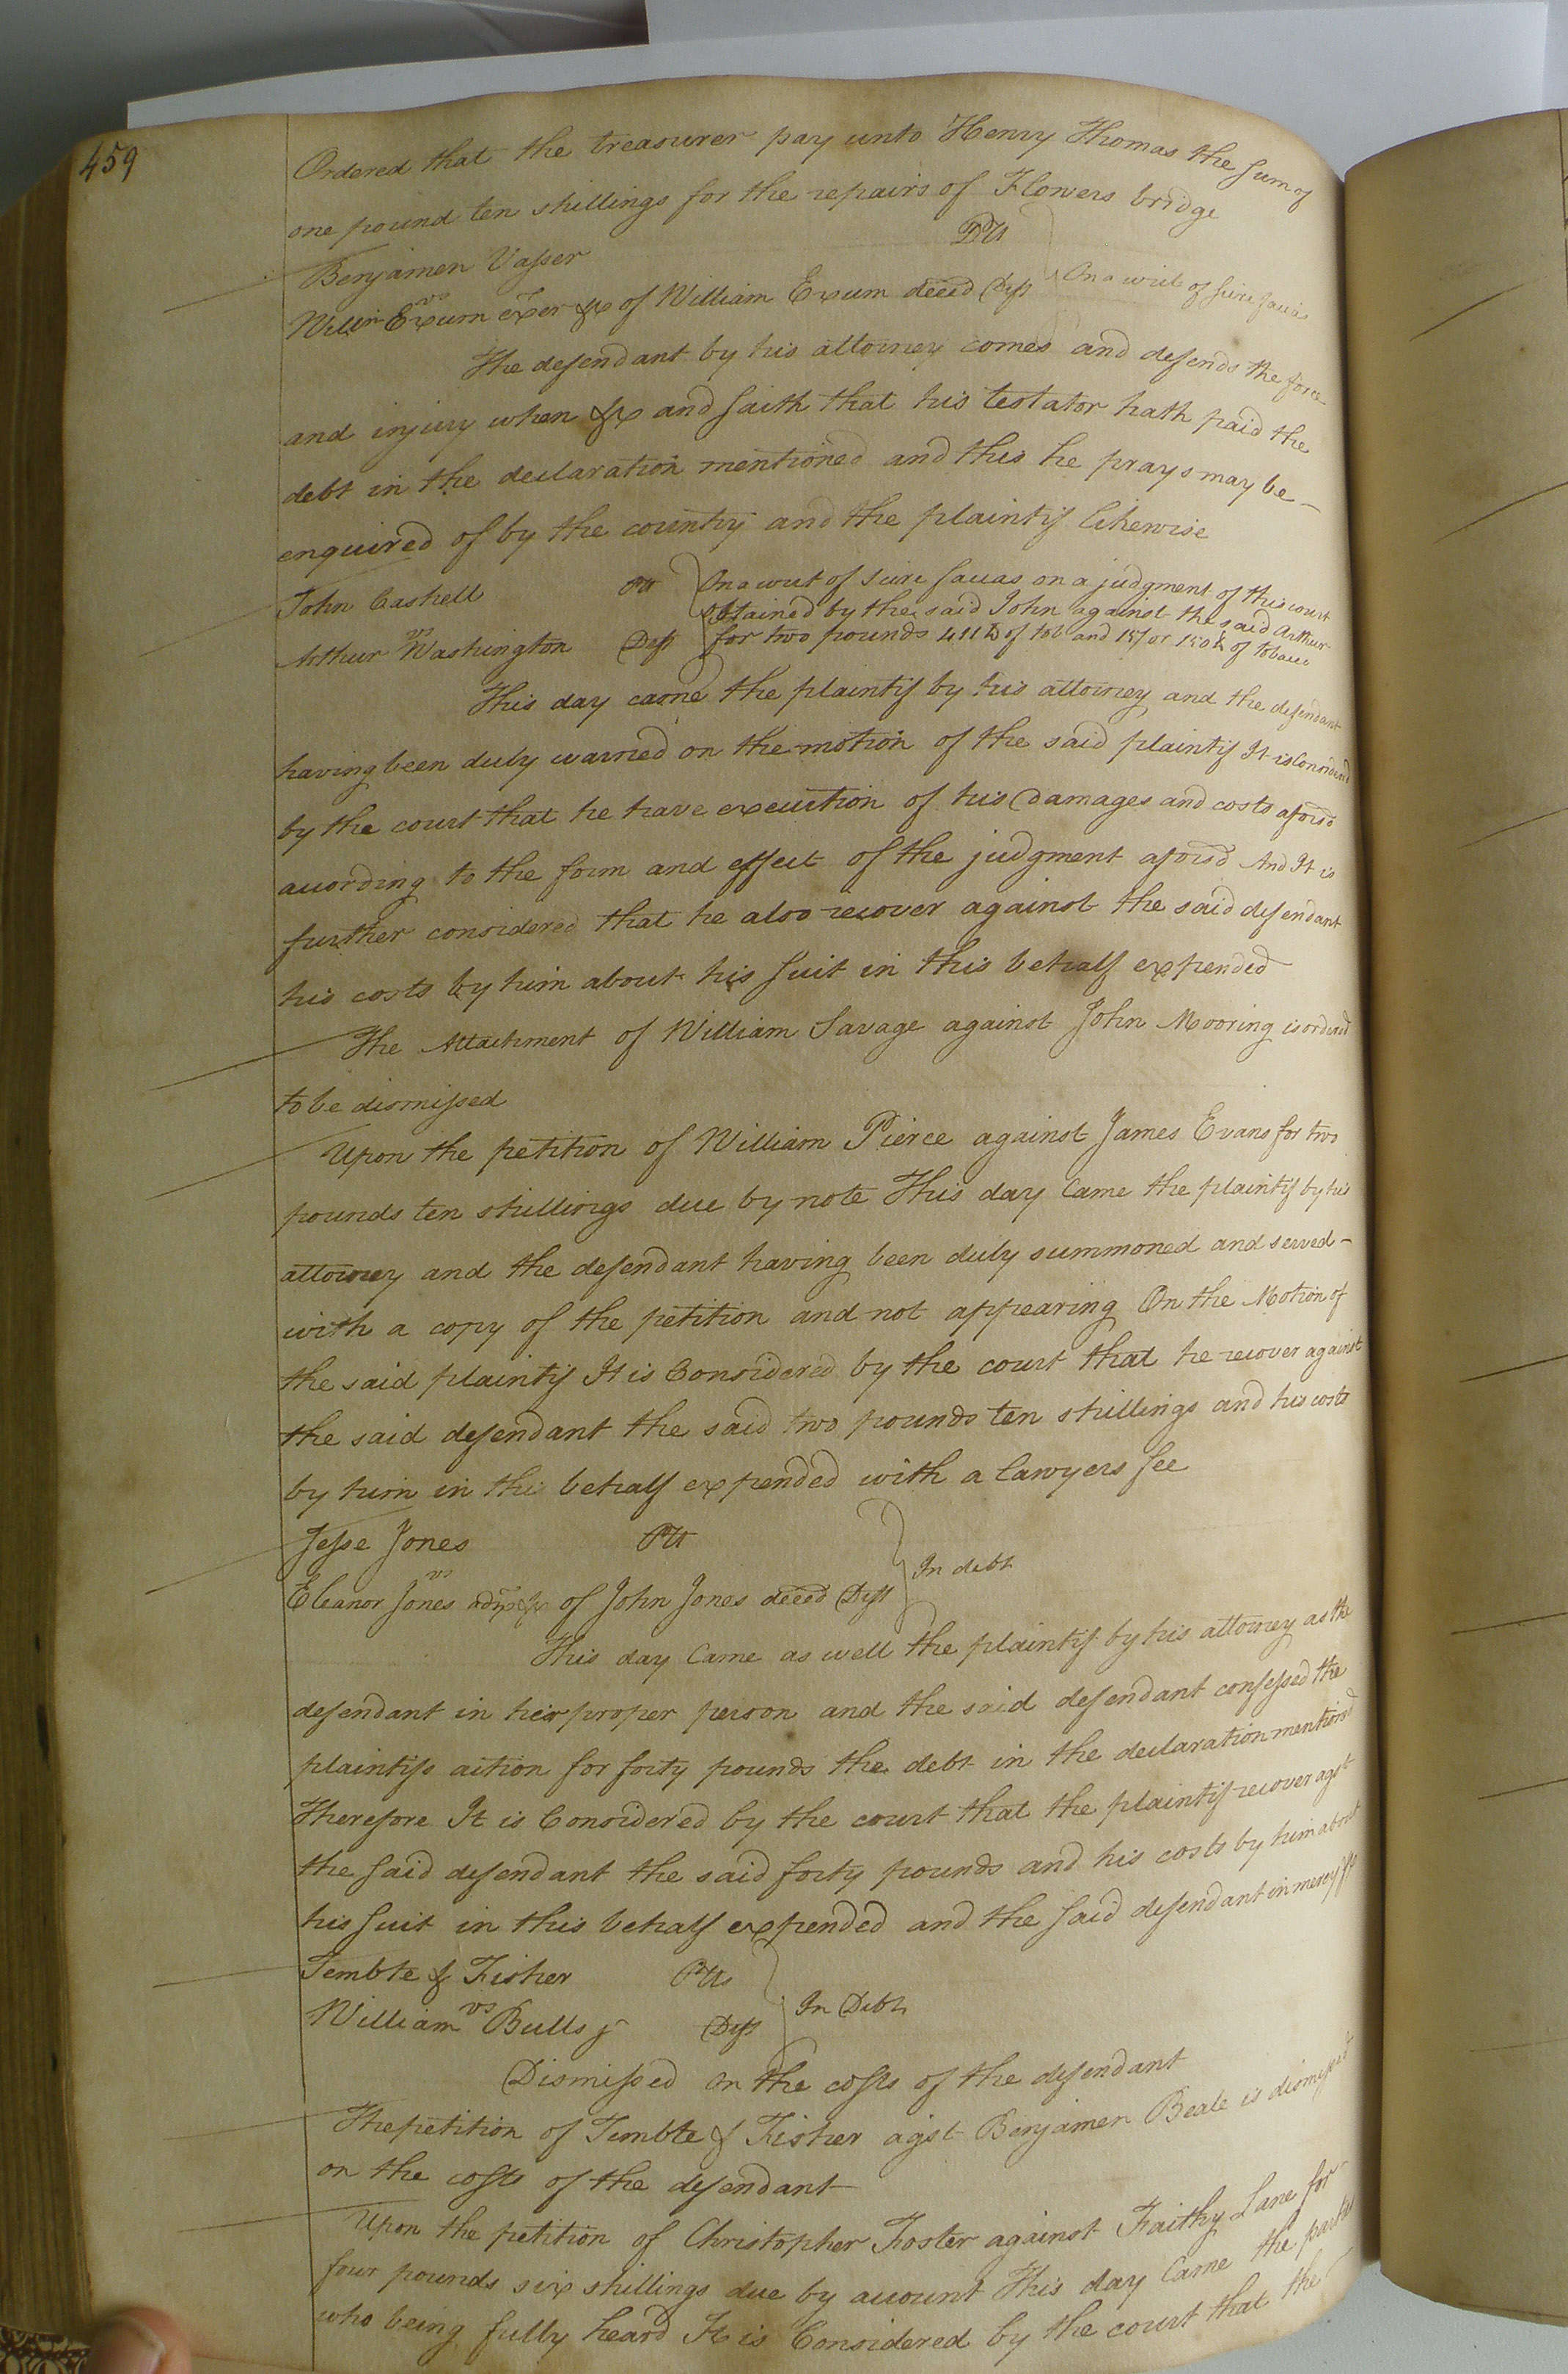 459
Ordered that the treasurer pay unto Henry Thomas the sum of
one pound ten shillings for the repairs of Flowers bridge
Benjamen Vasser Plt
vs
Willm Exum exer &c of William Exum deced Deft On a writ of scire facias
The defendant by his attorney comes and defends the force
and injury when &c and saith that his testator hath paid the
debt in the declaration mentioned and this he prays may be
enquired of by the country and the plaintif likewise
John Cashell Plt
vs
Arthur Washington Deft
On a writ of scire facias on a judgment of this court
obtained by the said John against the said Arthur
for two pounds 411 lb of tob and 15/ or 150 lb of tobacco
This day came the plaintif by his attorney and the defendant
having been duly warned on the motion of the said plaintif It is Considered
by the court that he have execution of his damages and costs aforsd
according to the form and effect of the judgment aforsd And It is
further considered that he also recover against the said defendant
his costs by him about his suit in this behalf expended
The Attachment of William Savage against John Mooring is ordered
to be dismissed
Upon the petition of William Pierce against James Evans for two
pounds ten shillings due by note This day Came the plaintif by his
attorney and the defendant having been duly summoned and served
with a copy of the petition and not appearing On the Motion of
the said plaintif It is Considered by the court that he recover against
the said defendant the said two pounds ten shillings and his costs
by him in this behalf expended with a lawyers fee
Jesse Jones Plt
vs
Eleanor Jones admx &c of John Jones deced Deft In debt
This day Came as well the plaintif by his attorney as the
defendant in her proper person and the said defendant confessed the
plaintifs action for forty pounds the debt in the declaration mentioned
Therefore It is Considered by the court that the plaintif recover agst
the said defendant the said forty pounds and his costs by him about
his suit in this behalf expended and the said defendant in mercy &c
Tembte & Fisher Plts
vs
William Bulls jr Deft In Debt
Dismissed on the costs of the defendant
The petition of Tembte & Fisher agst Benjamen Beale is dismissed
on the costs of the defendant
Upon the petition of Christopher Foster against Faithy Lane for
four pounds six shillings due by account This day Came the parties
who being fully heard It is Considered by the court that the